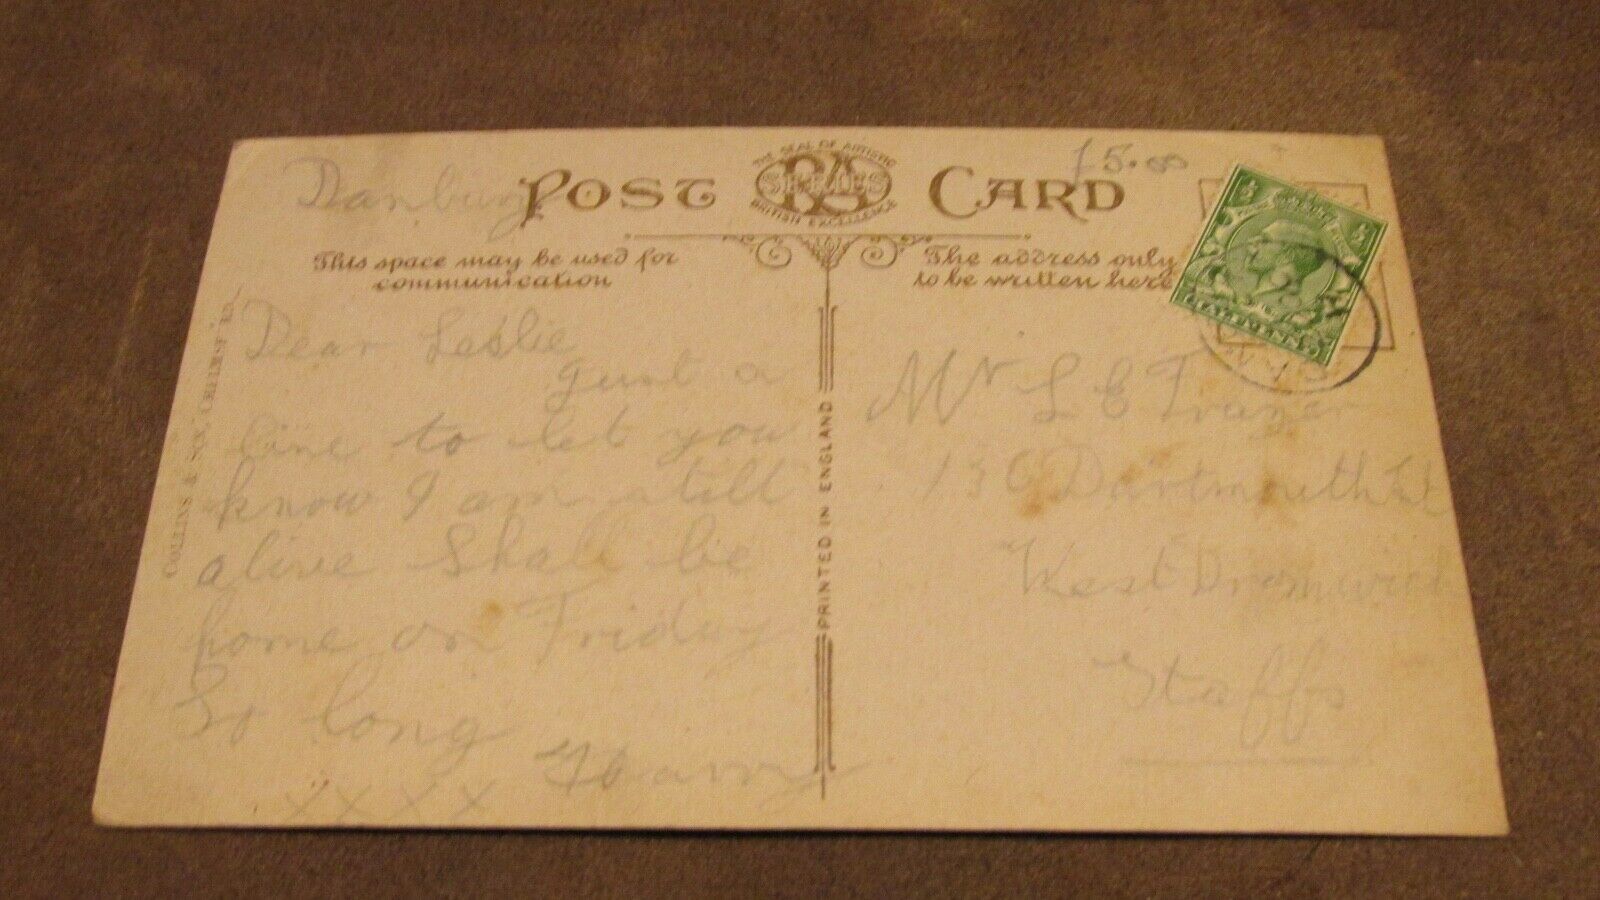 Danbury
POST CARD
THE SEAL OF ARTISTIC
RA
SERIES
BRITISH EXCELLENCE
15.00
This space may be used for
communication
The address only
to be written here
Dear Leslie
Just a
line to let you
know I am still
alive Shall be
home on Friday
So long
Harry
XXXX
COLLINS & SON,
PRINTED IN ENGLAND
Mr L C Frazer
136 Dartmouth St
West Bromwich
Staffs
HALFPENNY